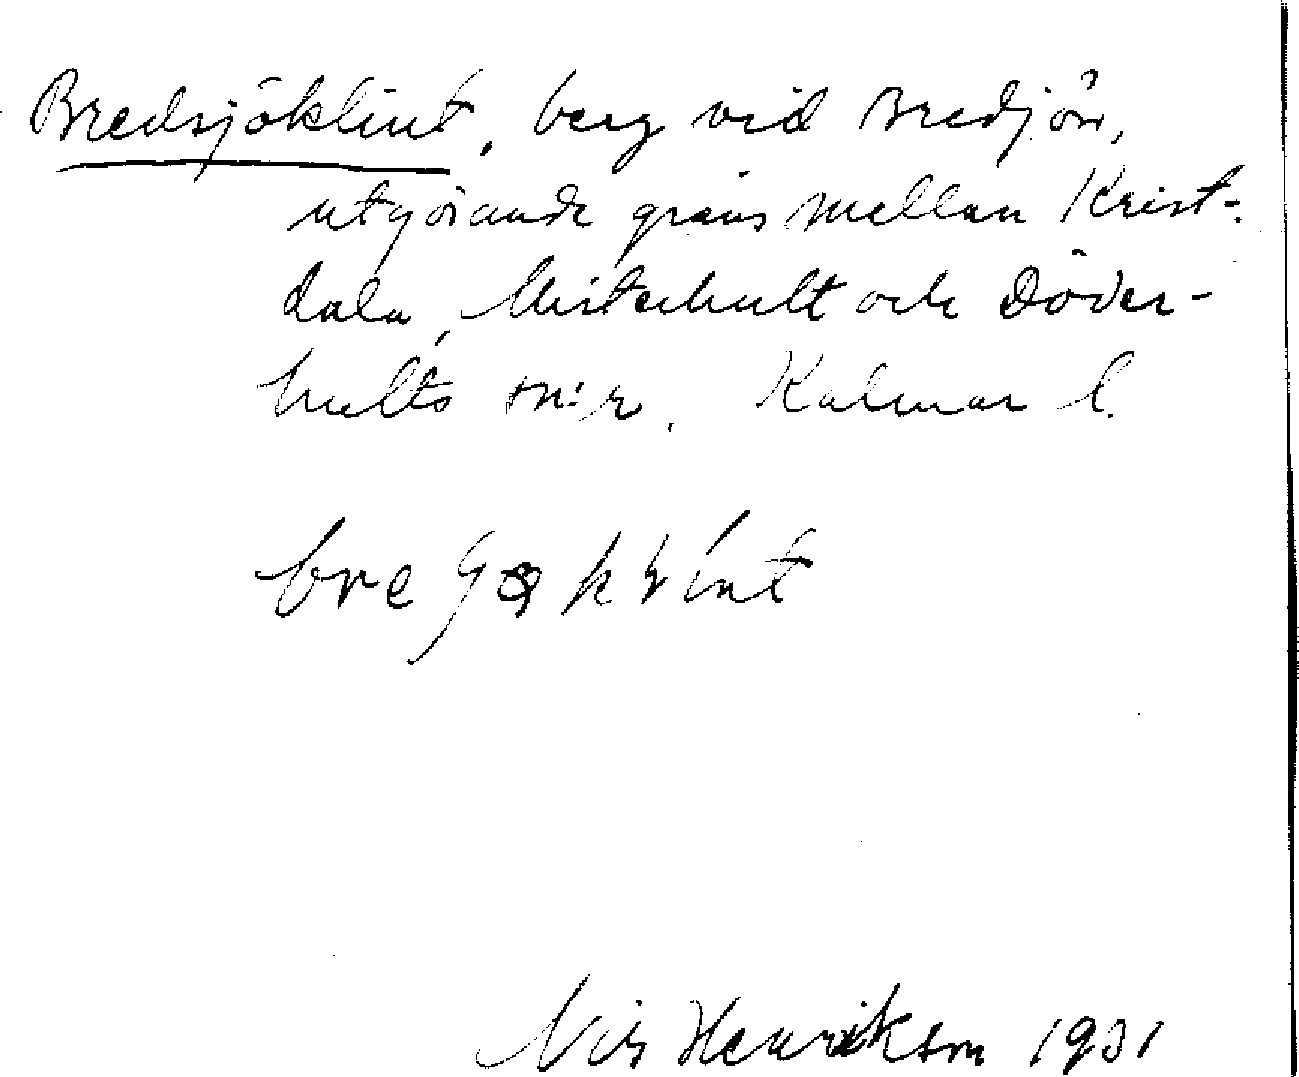 Bredsjöklint, berg vid Bredsjön,
utgörande gräns mellan Krist-
dala, Misterhult och Döder-
hults sn:r. Kalmar l.
Nils Henrikson 1931